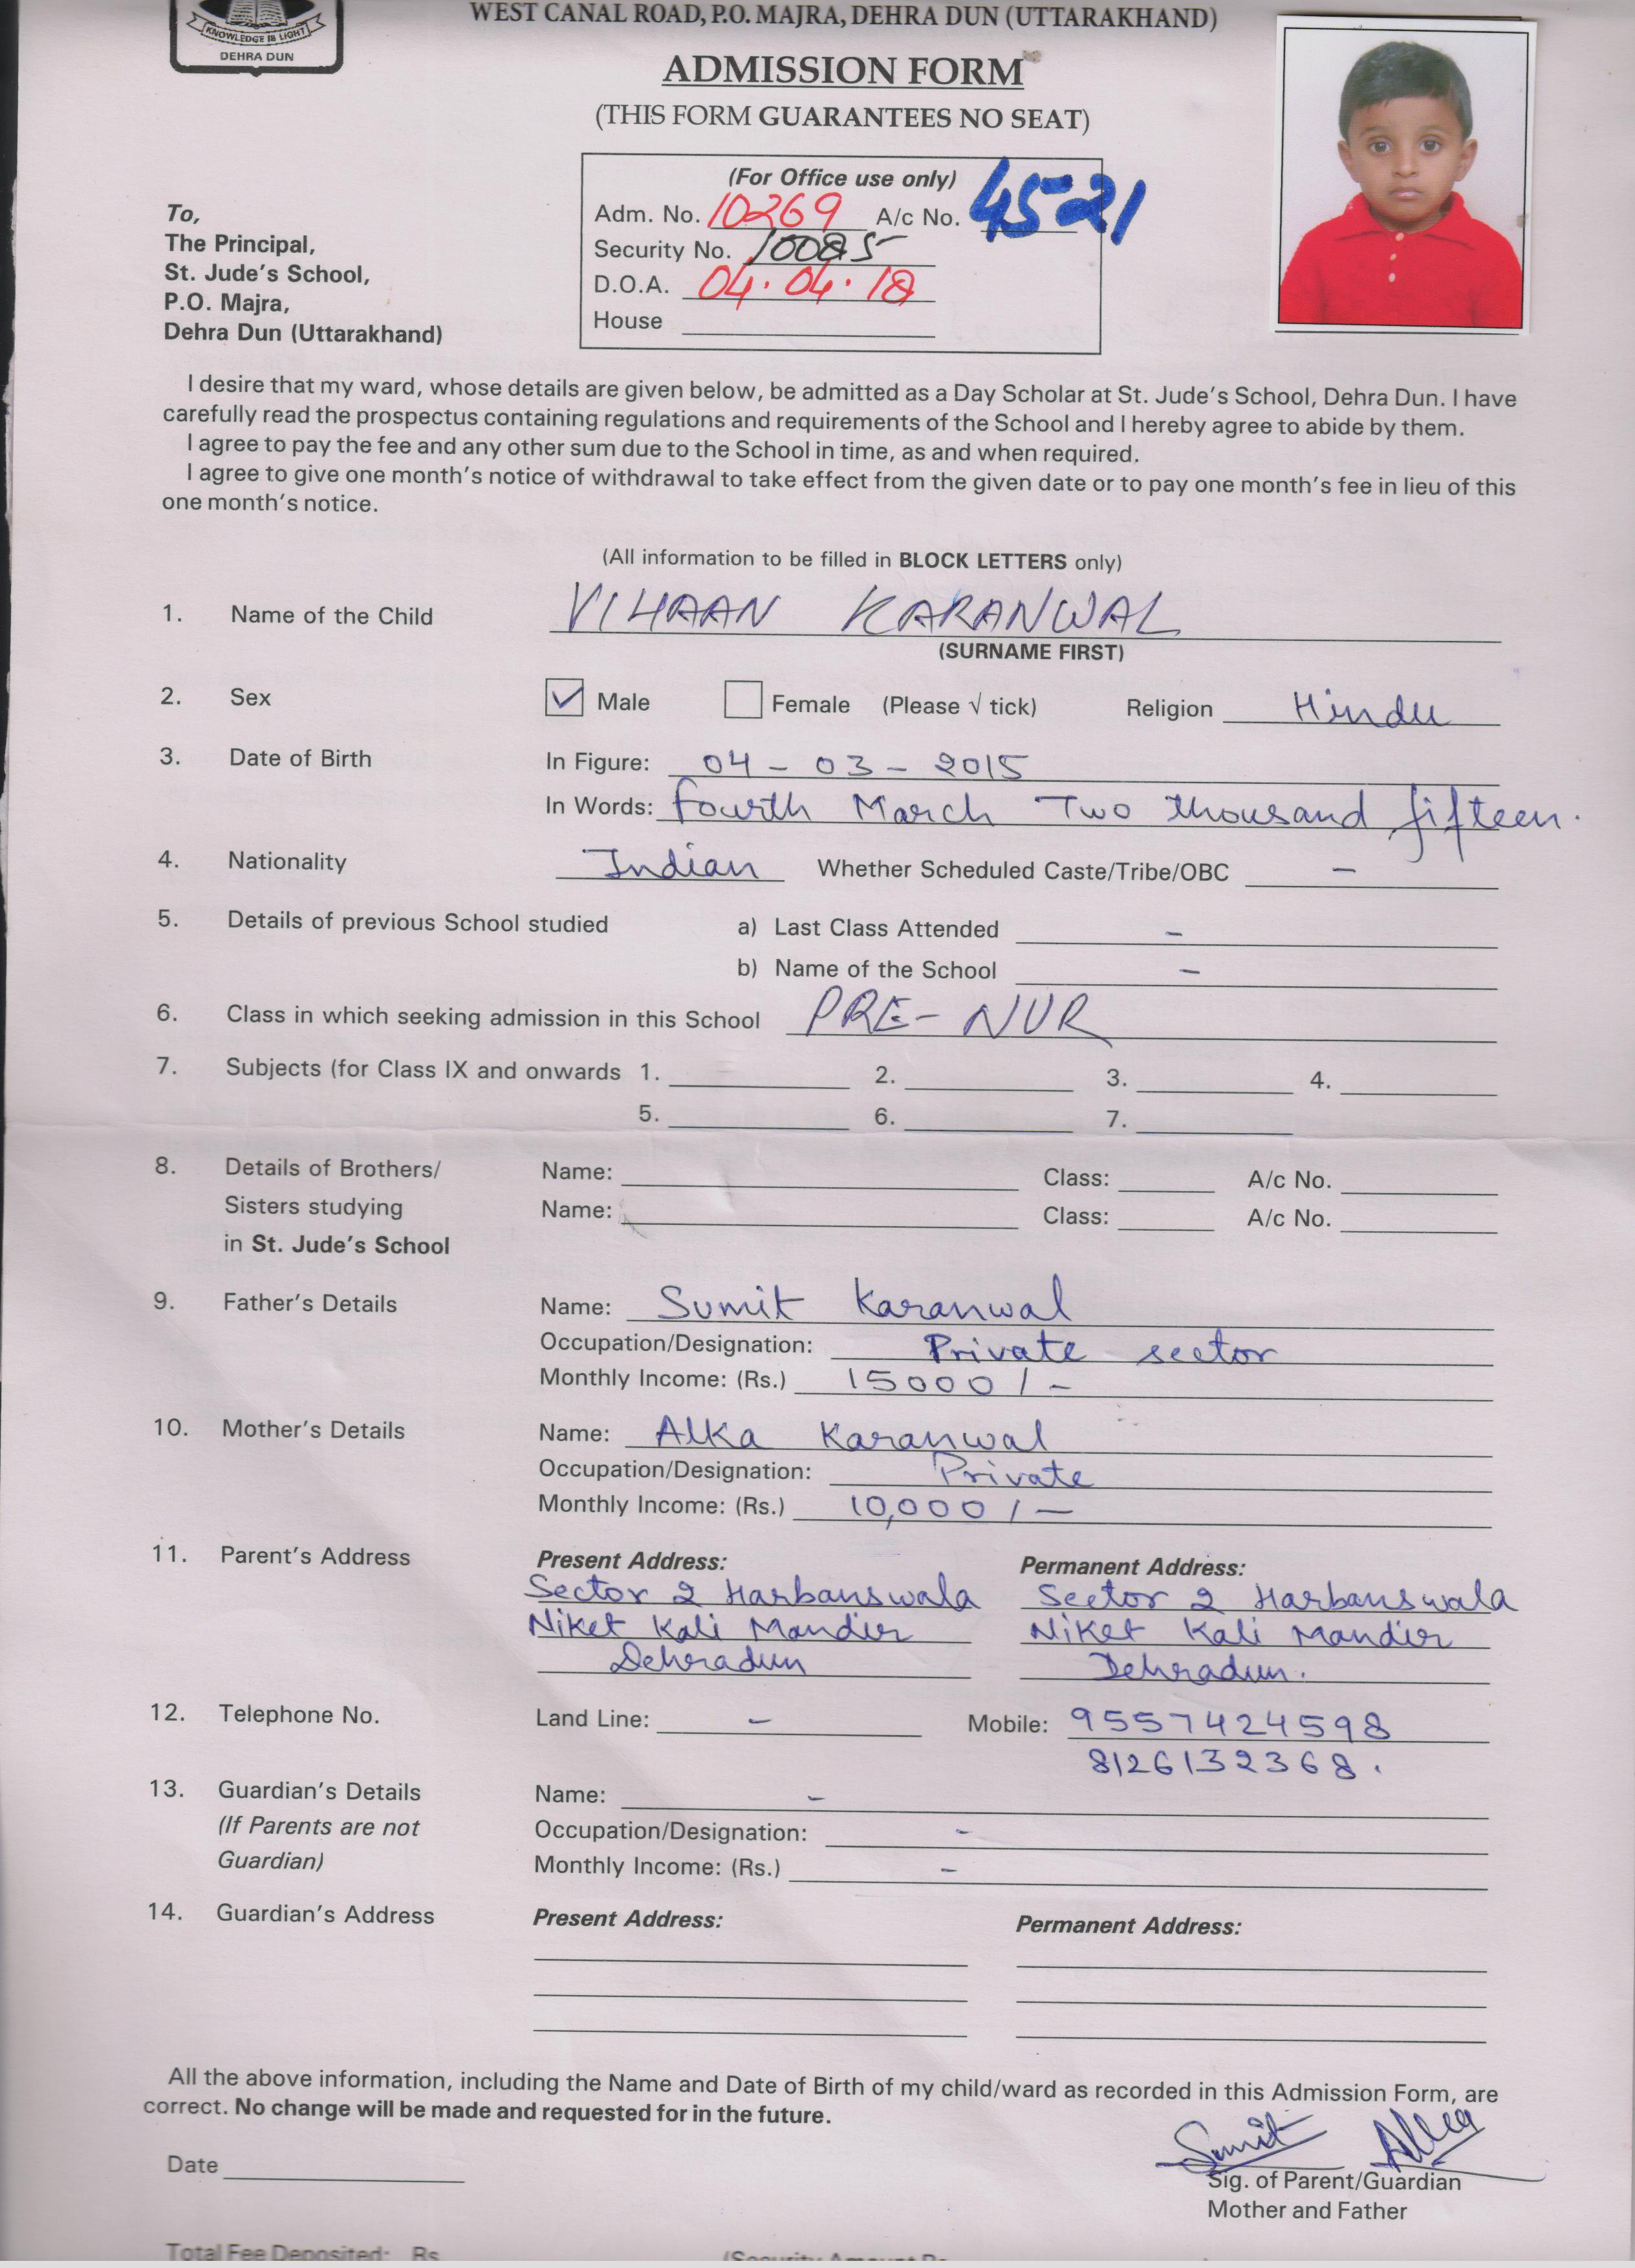 WEST CANAL ROAD, P.O. MAJRA, DEHRA DUN (UTTARAKHAND)
KNOWLEDGE IS LIGHT
DEHRA DUN
ADMISSION FORM
(THIS FORM GUARANTEES NO SEAT)
(For Office use only)
Adm. No. 10269 A/c No. 45-21
Security No. 10085
D.O.A. 04.04.18
House
To,
The Principal,
St. Jude's School,
P.O. Majra,
Dehra Dun (Uttarakhand)
I desire that my ward, whose details are given below, be admitted as a Day Scholar at St. Jude's School, Dehra Dun. I have
carefully read the prospectus containing regulations and requirements of the School and I hereby agree to abide by them.
I agree to pay the fee and any other sum due to the School in time, as and when required.
I agree to give one month's notice of withdrawal to take effect from the given date or to pay one month's fee in lieu of this
one month's notice.
(All information to be filled in BLOCK LETTERS only)
1. Name of the Child VIHAAN KARANWAL
(SURNAME FIRST)
2. Sex ✓ Male Female (Please √ tick) Religion Hindu
3. Date of Birth In Figure: 04 - 03 - 2015
In Words: Fourth March Two thousand fifteen.
4. Nationality Indian Whether Scheduled Caste/Tribe/OBC -
5. Details of previous School studied a) Last Class Attended -
b) Name of the School -
6. Class in which seeking admission in this School PRE-NUR
7. Subjects (for Class IX and onwards 1. 2. 3. 4.
5. 6. 7.
8. Details of Brothers/ Name: Class: A/c No.
Sisters studying Name: Class: A/c No.
in St. Jude's School
9. Father's Details Name: Sumit Karanwal
Occupation/Designation: Private sector
Monthly Income: (Rs.) 15000/-
10. Mother's Details Name: Alka Karanwal
Occupation/Designation: Private
Monthly Income: (Rs.) 10,000/-
11. Parent's Address Present Address: Permanent Address:
Sector 2 Harbanswala Sector 2 Harbanswala
Niket Kali Mandir Niket Kali Mandir
Dehradun Dehradun.
12. Telephone No. Land Line: - Mobile: 9557424598
8126132368.
13. Guardian's Details Name: -
(If Parents are not Occupation/Designation: -
Guardian) Monthly Income: (Rs.) -
14. Guardian's Address Present Address: Permanent Address:
All the above information, including the Name and Date of Birth of my child/ward as recorded in this Admission Form, are
correct. No change will be made and requested for in the future.
Sumit Alka
Date
Sig. of Parent/Guardian
Mother and Father
Total Fee Deposited: Rs.